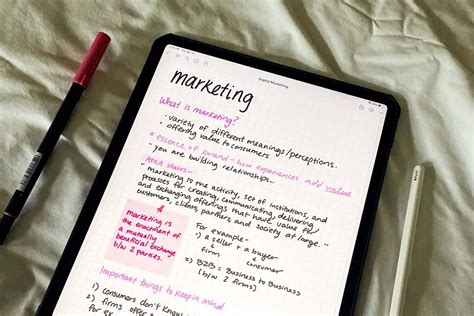 Digital Marketing
marketing
What is marketing?
- variety of different meanings/perceptions
- offering value to consumers
* essence of brand - how experiences add value
- you are building relationships -
AMA states -
"marketing is the activity, set of institutions, and
processes for creating, communicating, delivering,
and exchanging offerings that have value for
customers, clients, partners, and society at large."
Marketing is
the enactment of
a mutually
beneficial exchange
b/w 2 parties.
For example -
1) a seller + a buyer
firm consumer
2) B2B = Business to Business
(b/w 2 firms)
Important things to keep in mind
1) consumers don't know
2) firms offer